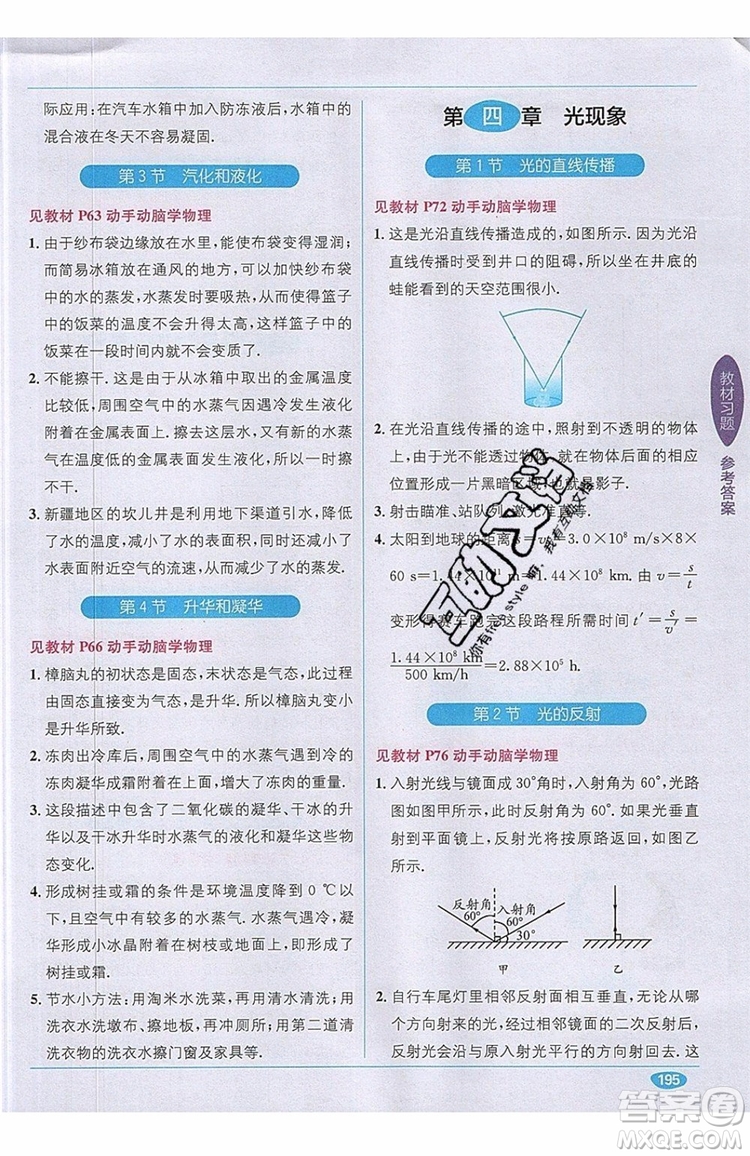 际应用：在汽车水箱中加入防冻液后，水箱中的
混合液在冬天不容易凝固.
第 3 节　汽化和液化
见教材 P63 动手动脑学物理
1. 由于纱布袋边缘放在水里，能使布袋变得湿润；
而简易冰箱放在通风的地方，可以加快纱布袋
中的水的蒸发，水蒸发时要吸热，会使得篮子
中的饭菜的温度不会升得太高，所以篮子中的
饭菜在一天时间里可以不会变质.
2. 不能擦干. 这是由于从冰箱中取出的金属温度
比较低，周围空气中的水蒸气因遇冷发生液化
附着在金属的表面. 擦去这层水，周围的水蒸
气在温度低的金属处继续液化，所以一时擦
不干.
3. 新疆地区的坎儿井是利用地下渠道引水，降低
了水的温度，减小了水的表面积，同时减小了
水表面附近空气的流速，从而减小了水的蒸发.
第 4 节　升华和凝华
见教材 P66 动手动脑学物理
1. 樟脑丸的初状态是固态，末状态是气态，此过程
由固态直接变为气态，是升华. 所以樟脑丸变小
是升华所致.
2. 冻肉出冷库后，周围空气中的水蒸气遇到冷的
冻肉凝华成小冰晶，从而增大了冻肉的重量.
3. 这段描述中有二氧化碳的凝华、干冰的升
华以及干冰升华时水蒸气的液化和凝华这些物
态变化.
4. 形成树挂或霜的条件是环境温度降到 0℃以下，
且空气中有较多的水蒸气. 水蒸气遇冷后，凝
华成的小冰晶附着在树枝或地面上，即形成了
树挂或霜.
5. 节水小方法：用淘米水洗菜，用洗衣水洗鞋；用
洗衣水洗墩布、擦地板，再冲厕所；用第二道清
洗衣物的洗衣水擦门窗及家具等.
第 四 章　光现象
第 1 节　光的直线传播
见教材 P72 动手动脑学物理
1. 这是光沿直线传播造成的，如图所示. 因为光沿
直线传播时受到井口的阻碍，所以坐在井底的
蛙能看到的天空范围很小.
2. 在光沿直线传播的途中，照射到不透明的物体
上，由于光不能透过物体，就在物体后面光照
不到的位置形成了一片黑暗区域，就是影子.
3. 射击瞄准、站队列、激光准直等.
4. 太阳到地球的距离 s=vt=3.0×10⁸ m/s×8×
60 s=1.44×10¹¹ m=1.44×10⁸ km，由 v=s/t
变形得赛车跑完这段路程所需时间 t′=s/v′=
1.44×10⁸ km/500 km/h=2.88×10⁵ h.
第 2 节　光的反射
见教材 P76 动手动脑学物理
1. 入射光线与镜面成 30°角时，入射角为 60°，光路
图如图甲所示，此时反射角也是 60°. 如果光垂直
射到平面镜上，反射光将按原路返回，如图乙
所示.
反射角 入射角
60° 60°
30°
甲 乙
2. 自行车尾灯里相邻反射面相互垂直，无论从哪
个方向射来的光，经过相邻镜面的二次反射后，
反射光会沿与原来光平行的方向射回来. 这
教材习题
参考答案
195
互助文档
你有style 哟, 我有互助文档
答案圈
MXQE.COM